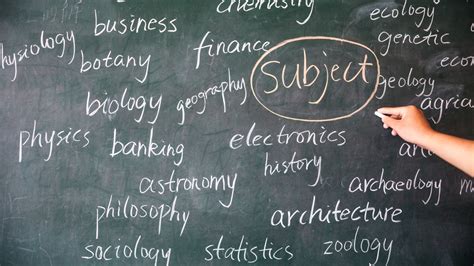 business
chemistry
ecology
physiology
finance
genetic
botany
subject
geology
biology
geography
physics
banking
electronics
history
astronomy
archaeology
philosophy
architecture
sociology
statistics
zoology